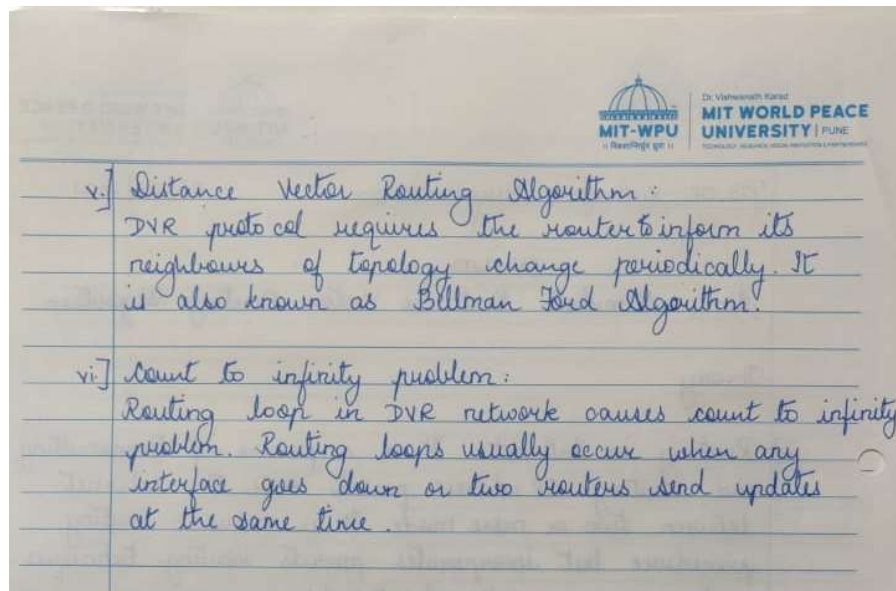 Dr. Vishwanath Karad
MIT WORLD PEACE
UNIVERSITY | PUNE
MIT-WPU
v.] Distance Vector Routing Algorithm:
DVR protocol requires the router to inform its
neighbours of topology change periodically. It
is also known as Bellman Ford Algorithm.
vi.] Count to infinity problem:
Routing loop in DVR network causes count to infinity
problem. Routing loops usually occur when any
interface goes down or two routers send updates
at the same time.